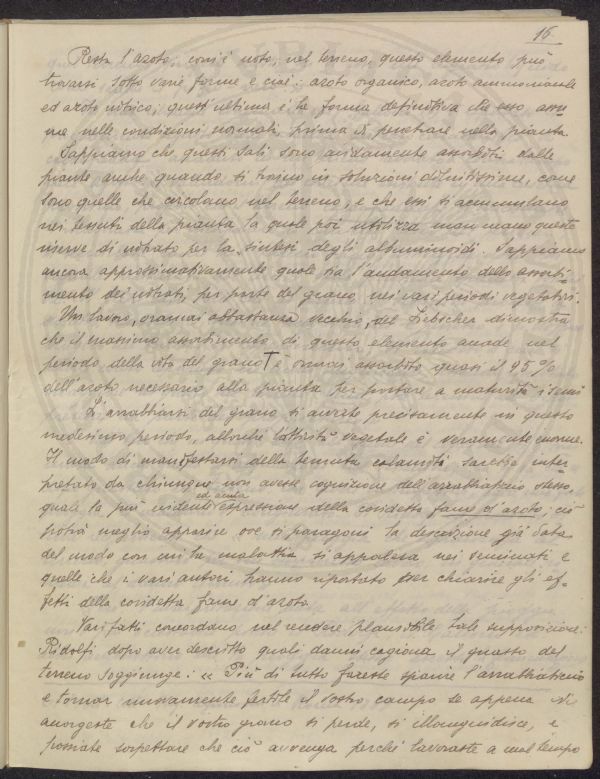 16.
Resta l'azoto; com'è noto, nel terreno, questo elemento può
trovarsi sotto varie forme e cioè: azoto organico, azoto ammoniacale
ed azoto nitrico; quest'ultima è la forma definitiva che esso assu-
me nelle condizioni normali, prima di penetrare nella pianta.
Sappiamo che questi sali sono avidamente assorbiti dalle
piante anche quando si trovino in soluzioni diluitissime, come
sono quelle che circolano nel terreno, e che essi si accumulano
nei tessuti della pianta la quale poi utilizza man mano queste
riserve di nitrato per la sintesi degli albuminoidi. Sappiamo
ancora approssimativamente quale sia l'andamento dello assorbi-
mento dei nitrati, per parte del grano, nei vari periodi vegetativi.
Un lavoro, oramai abbastanza vecchio, del Liebscher dimostra
che il massimo assorbimento di questo elemento accade nel
periodo della vita del grano è ormai assorbito quasi il 95%
dell'azoto necessario alla pianta per portare a maturità i semi
L'arrabbiarsi del grano si avvera precisamente in questo
medesimo periodo, allorchè l'attività vegetale è veramente enorme.
Il modo di manifestarsi della temuta calamità sarebbe inter-
pretato da chiunque non avesse cognizione dell'arrabbiaticcio stesso,
quale la più evidente ed acuta espressione della cosidetta fame d'azoto; ciò
potrà meglio apparire ove si paragoni la descrizione già data
del modo con cui la malattia si appalesa nei seminati e
quelle che i vari autori hanno riportato per chiarire gli ef-
fetti della cosidetta fame d'azoto.
Vari fatti concordano nel rendere plausibile tale supposizione:
Ridolfi, dopo aver descritto quali danni cagiona il guasto del
terreno soggiunge: « Più di tutto fareste sparire l'arrabbiaticcio
e tornar nuovamente fertile il vostro campo se appena vi
accorgeste che il vostro grano si perde, si illanguidisce, e
possiate sospettare che ciò avvenga perchè lavoraste a mal tempo